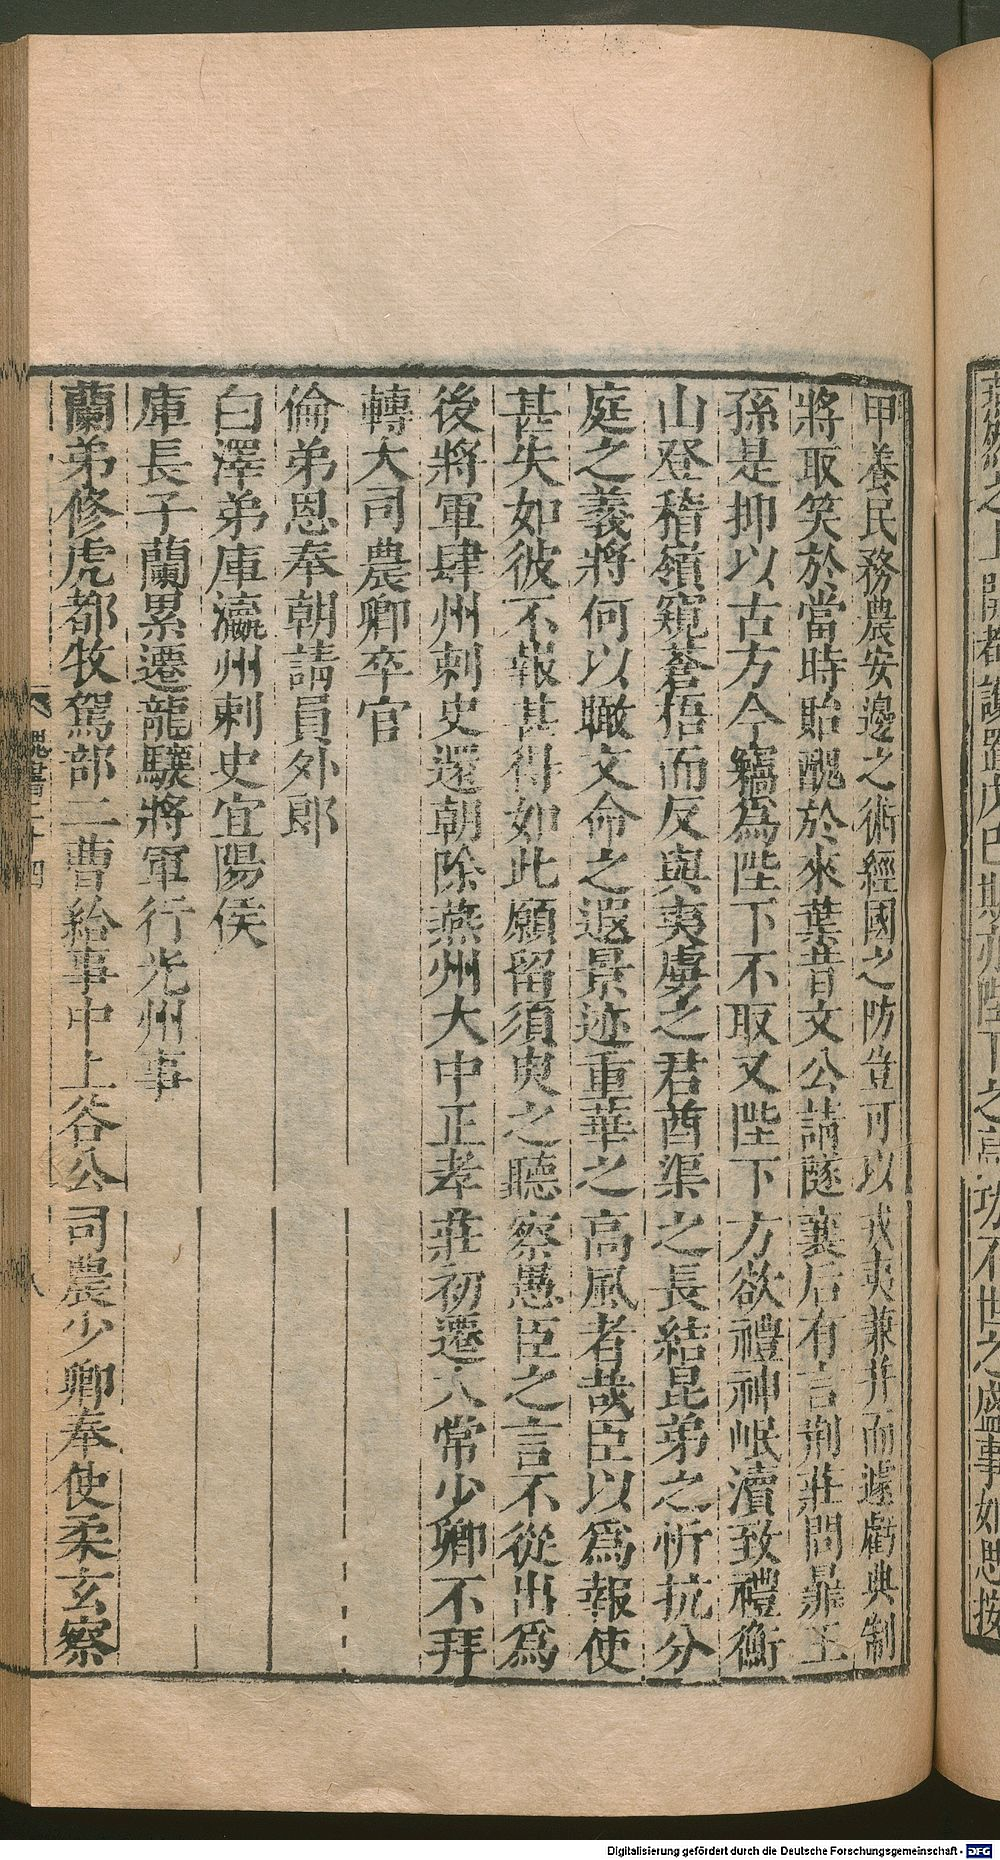 甲養民務農安邊之術經國之防豈可以戎夷兼并而遽虧典制
將取笑於當時貽醜於來葉昔文公請隧襄后有言荆莊問鼎王
孫是抑以古方今竊為陛下不取又陛下方欲禮神岷瀆致禮衡
山登稽嶺窺蒼梧而反與夷虜之君酋渠之長結昆弟之忻抗分
庭之義將何以瞰文命之遐景迹重華之高風者哉臣以為報使
甚失如彼不報甚得如此願留須臾之聽察愚臣之言不從出為
後將軍肆州刺史還朝除燕州大中正孝莊初遷大常少卿不拜
轉大司農卿卒官
倫弟恩奉朝請員外郎
白澤弟庫瀛州刺史宜陽侯
庫長子蘭累遷龍驤將軍行光州事
蘭弟修虎都牧駕部二曹給事中上谷公司農少卿奉使柔玄察
魏書二十四
八
Digitalisierung gefördert durch die Deutsche Forschungsgemeinschaft - DFG